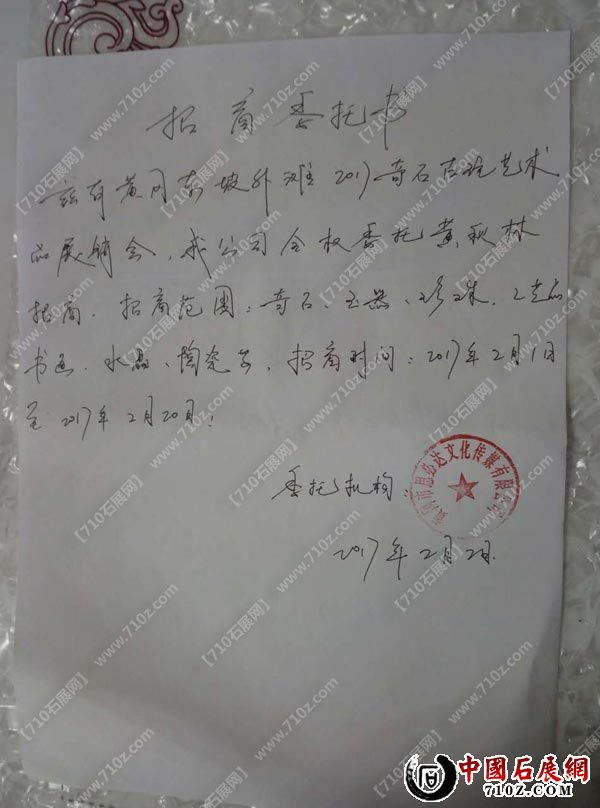 招商委托书
兹有黄冈东坡外滩2017奇石古玩艺术
品展销会,我公司全权委托黄秋林
招商.招商范围:奇石、玉器、珍珠、工艺品
书画、水晶、陶瓷等,招商时间:2017年2月1日
至2017年2月20日!
委托机构
黄冈市思必达文化传媒有限公司
2017年2月2日.
【710石展网】 www.710z.com
中國石展網
710Z.COM